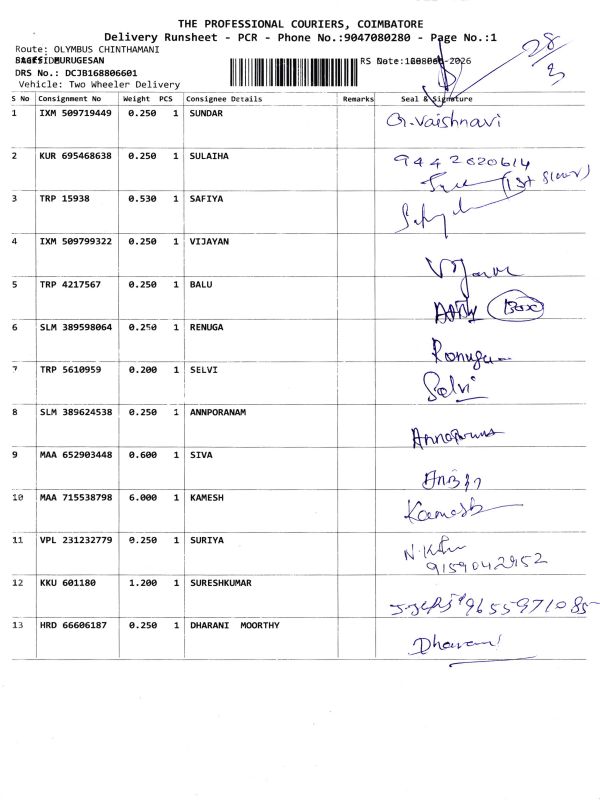 THE PROFESSIONAL COURIERS, COIMBATORE
Delivery Runsheet - PCR - Phone No.:9047080280 - Page No.:1
28/3
Route: OLYMBUS CHINTHAMANI
MURUGESAN
DRS No.: DCJB168806601
Vehicle: Two Wheeler Delivery
S No Consignment No Weight PCS Consignee Details Remarks Seal & Signature
1 IXM 509719449 0.250 1 SUNDAR G.Vaishnavi
2 KUR 695468638 0.250 1 SULAIHA 9442620614
(1st floor)
3 TRP 15938 0.530 1 SAFIYA
4 IXM 509799322 0.250 1 VIJAYAN Vijayan
5 TRP 4217567 0.250 1 BALU Box
6 SLM 389598064 0.250 1 RENUGA Renuga
7 TRP 5610959 0.200 1 SELVI Selvi
8 SLM 389624538 0.250 1 ANNPORANAM
9 MAA 652903448 0.600 1 SIVA
10 MAA 715538798 6.000 1 KAMESH Kamesh
11 VPL 231232779 0.250 1 SURIYA
9159042952
12 KKU 601180 1.200 1 SURESHKUMAR 9655971085
13 HRD 66606187 0.250 1 DHARANI MOORTHY Dharani